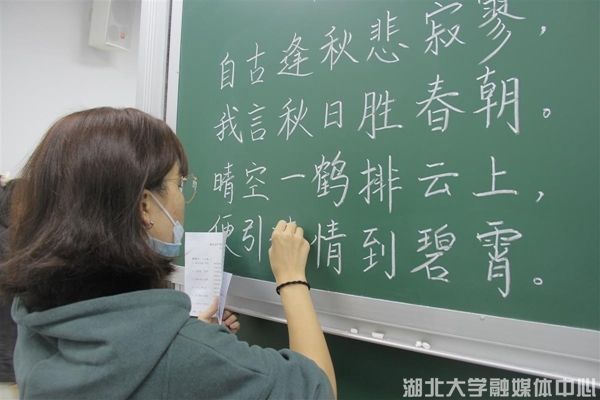 自古逢秋悲寂寥，
我言秋日胜春朝。
晴空一鹤排云上，
便引情到碧霄。
湖北大学融媒体中心